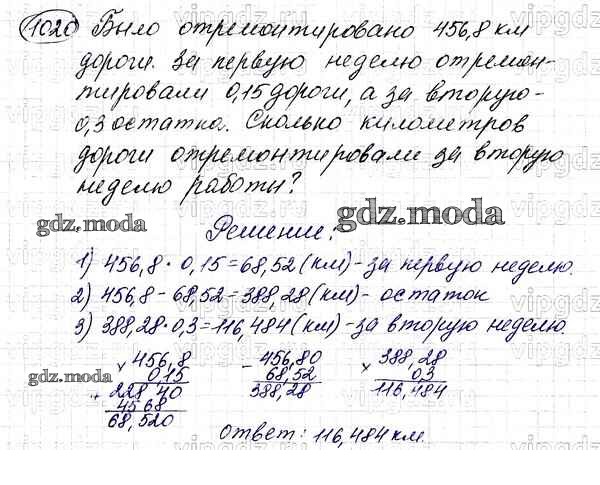 1020 Было отремонтировано 456,8 км
дороги. За первую неделю отремон-
тировали 0,15 дороги, а за вторую -
0,3 остатка. Сколько километров
дороги отремонтировали за вторую
неделю работы?
gdz.moda
gdz.moda
Решение:
1) 456,8 · 0,15 = 68,52 (км) - за первую неделю.
2) 456,8 - 68,52 = 388,28 (км) - остаток
3) 388,28 · 0,3 = 116,484 (км) - за вторую неделю.
gdz.moda
× 456,8
0,15
+ 228 40
456 8
68,520
- 456,80
68,52
388,28
× 388,28
0,3
116,484
Ответ: 116,484 км.
vipgdz